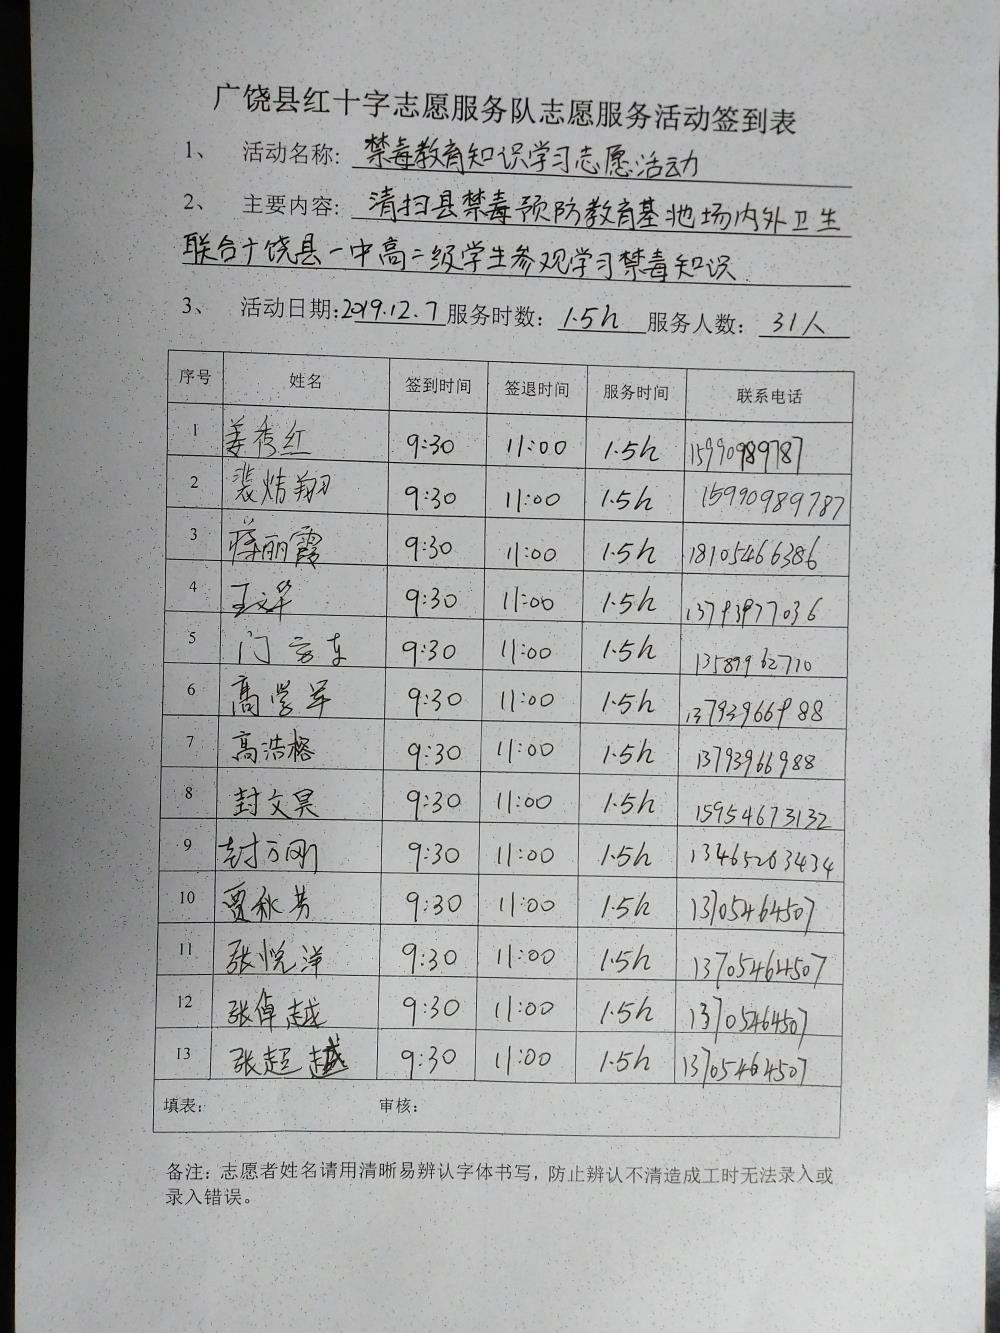 广饶县红十字志愿服务队志愿服务活动签到表
1、 活动名称: 禁毒教育知识学习志愿活动
2、 主要内容: 清扫县禁毒预防教育基地场内外卫生
联合广饶县一中高二级学生参观学习禁毒知识
3、 活动日期: 2019.12.7 服务时数: 1.5h 服务人数: 31人
序号 姓名 签到时间 签退时间 服务时间 联系电话
1 姜秀红 9:30 11:00 1.5h 15990989787
2 裴炳翔 9:30 11:00 1.5h 15990989787
3 蒋丽霞 9:30 11:00 1.5h 18105466386
4 王文华 9:30 11:00 1.5h 13793977036
5 门京东 9:30 11:00 1.5h 13589962710
6 高学军 9:30 11:00 1.5h 13793966988
7 高浩榕 9:30 11:00 1.5h 13793966988
8 封文昊 9:30 11:00 1.5h 15954673132
9 封万刚 9:30 11:00 1.5h 13465263434
10 贾秋芳 9:30 11:00 1.5h 13705464507
11 张悦洋 9:30 11:00 1.5h 13705464507
12 张卓越 9:30 11:00 1.5h 13705464507
13 张超越 9:30 11:00 1.5h 13705464507
填表: 审核:
备注: 志愿者姓名请用清晰易辨认字体书写, 防止辨认不清造成工时无法录入或
录入错误。